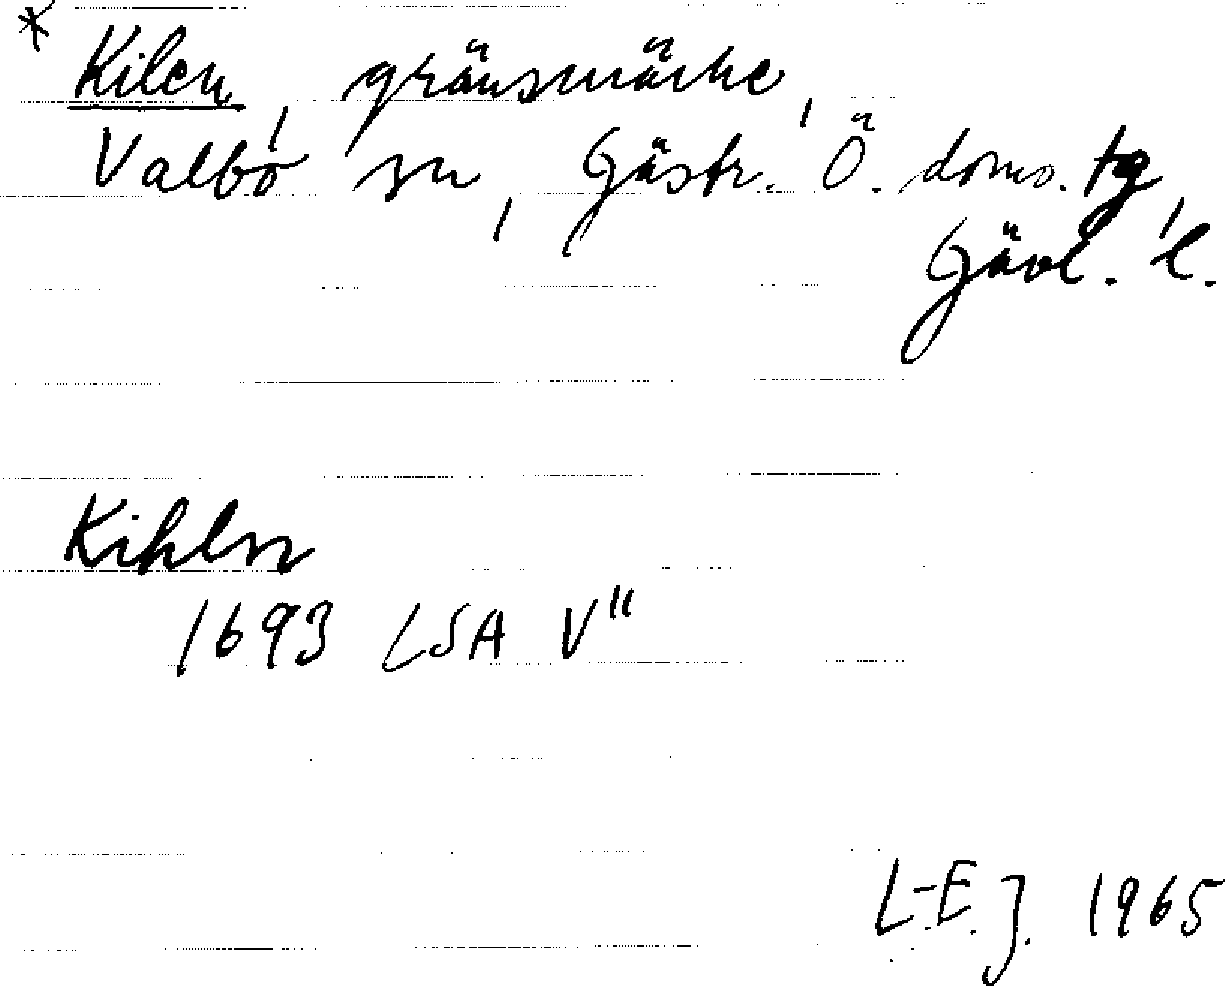 * Kilen, gränsmärke,
Valbo sn, Gästr. Ö. doms. tg,
Gävl. l.
Kihlen
1693 LSA V"
L-E. J. 1965